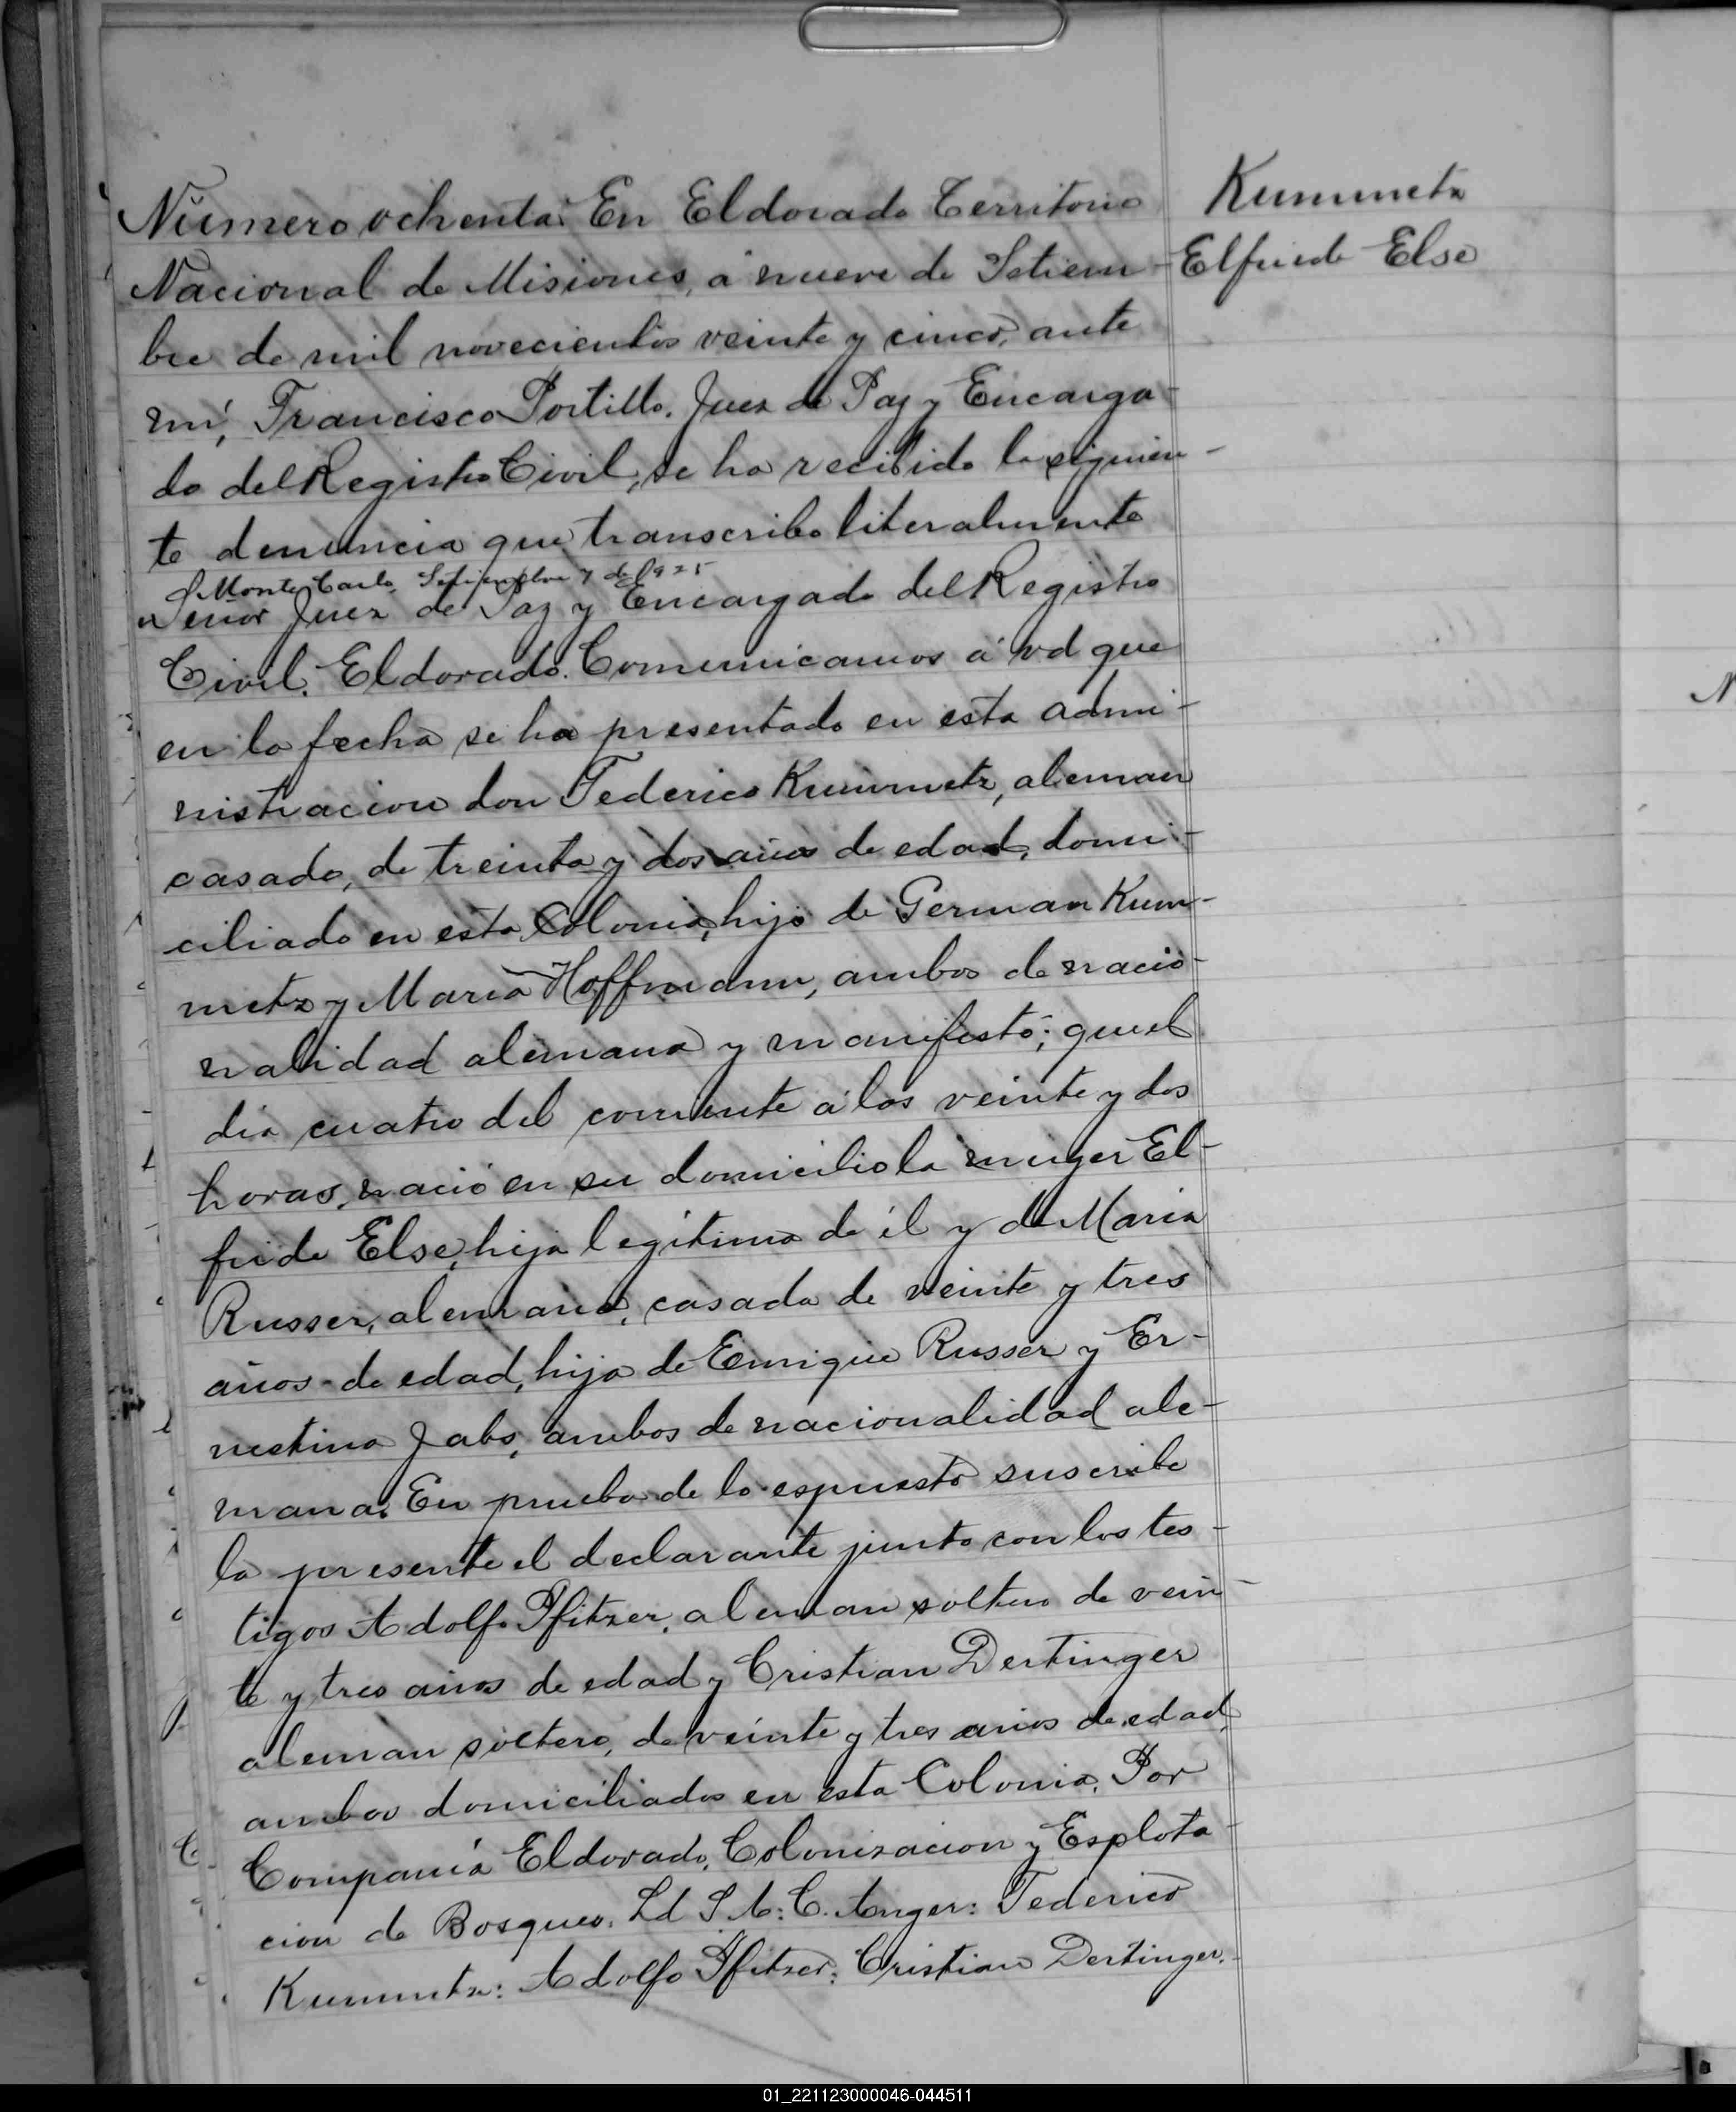 Kummetz
Elfriede Else
Número ochenta: En Eldorado Territorio
Nacional de Misiones, á nueve de Setiem-
bre de mil novecientos veinte y cinco, ante
mí, Francisco Portillo, Juez de Paz y Encarga-
do del Registro Civil, se ha recibido la siguien-
te denuncia que transcribo literalmente
Monte Carlo, Setiembre 7 de 1925
"Señor Juez de Paz y Encargado del Registro
Civil. Eldorado. Comunicamos á vd que
en la fecha se ha presentado en esta admi-
nistracion don Federico Kummetz, aleman
casado, de treinta y dos años de edad, domi-
ciliado en esta Colonia, hijo de German Kum-
metz y Maria Hoffmann, ambos de nacio-
nalidad alemana y manifestó; que el
dia cuatro del corriente á las veinte y dos
horas, nació en su domicilio la muger El-
friede Else, hija legítima de él y de Maria
Russer, alemana, casada de veinte y tres
años de edad, hija de Enrique Russer y Er-
nestina Jabs, ambos de nacionalidad ale-
mana. En prueba de lo espuesto suscribe
la presente el declarante junto con los tes-
tigos Adolfo Pfitzer, aleman soltero de vein-
te y tres años de edad y Cristian Dertinger
aleman soltero, de veinte y tres años de edad,
ambos domiciliados en esta Colonia. Por
Compania Eldorado, Colonizacion y Esplota-
cion de Bosques. Ld S. A: C. Anger: Federico
Kummetz: Adolfo Pfitzer: Cristian Dertinger.
01_221123000046-044511